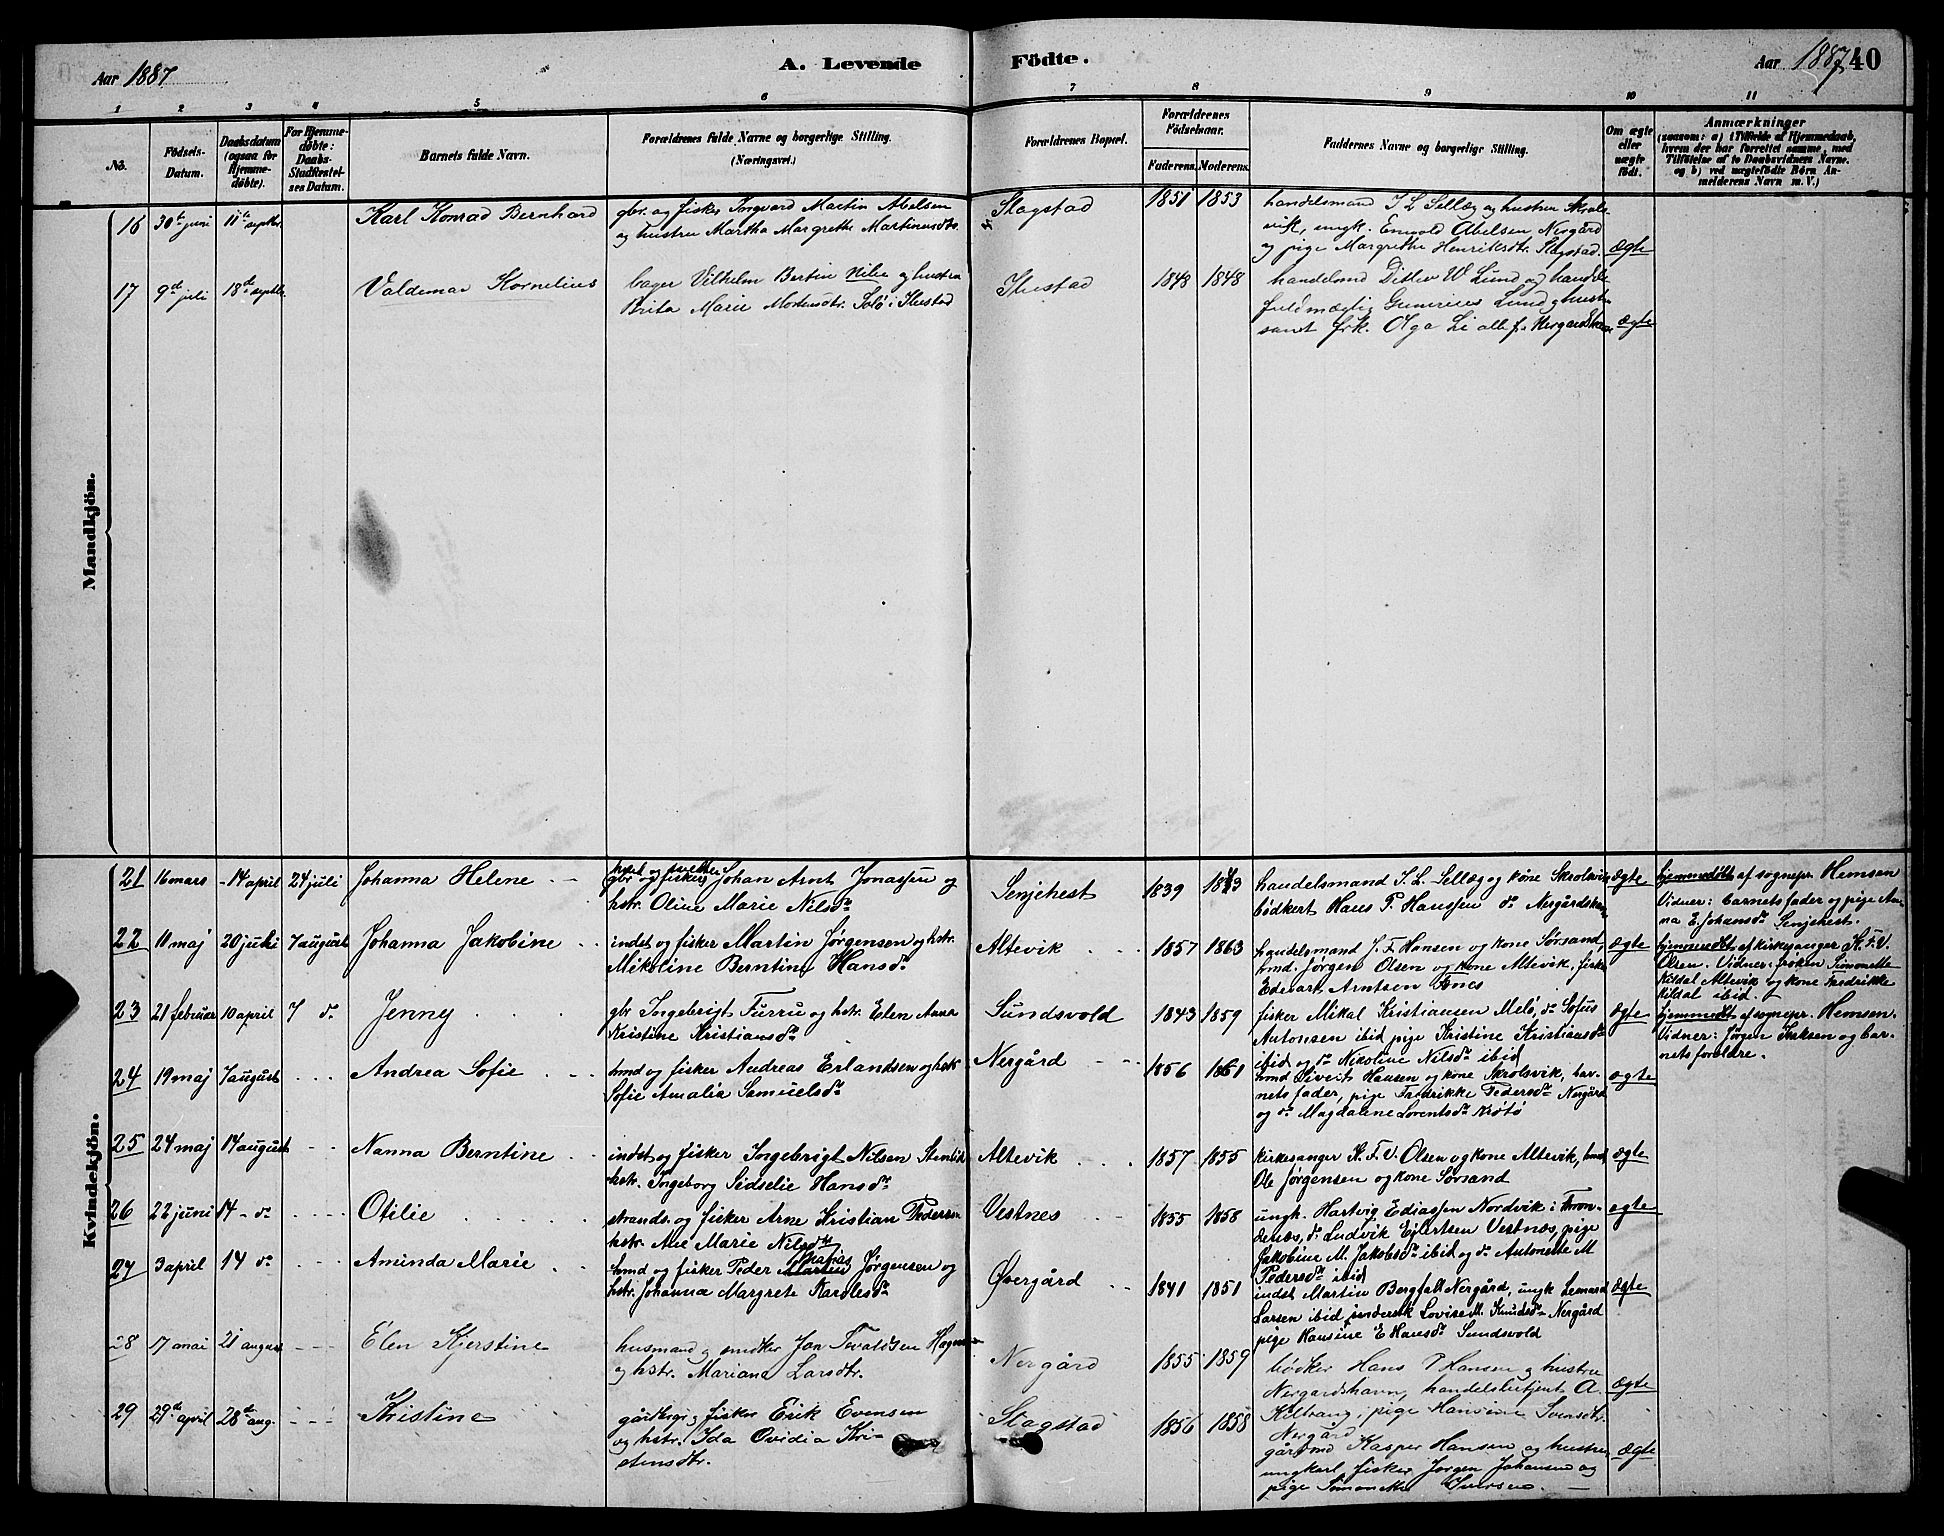 Aar 1887
A. Levende
Födte.
Aar 1887
40
1 2 3 4 5 6 7 8 9 10 11
No.
Födsels-
Datum.
Daabsdatum
(ogsaa for
Hjemme-
døbte).
For Hjemme-
døbte:
Daabs-
Stadfæstel-
ses Datum.
Barnets fulde Navn.
Forældrenes fulde Navne og borgerlige Stilling.
(Næringsvei.)
Forældrenes Bopæl.
Forældrenes
Fødselsaar.
Faderens. Moderens.
Faddernes Navne og borgerlige Stilling.
Om ægte
eller
uægte
født.
Anmærkninger
(saasom: a) i Tilfælde af Hjemmedaab,
hvem der har forrettet samme, med
Tilføielse af to Daabsvidners Navne.
og b) ved uægtefødte Børn An-
melderens Navn m. V.)
Mandkjön.
16 30te juni 11te septbr. Karl Konrad Bernhard
gbr. og fisker Torgvard Martin Abelsen
og hustru Martha Margrethe Martinusdtr.
Slagstad 1851 1853
handelsmand I L Sellæg og hustru Skrols-
vik, ungk. Enevold Abelsen Nergård
og pige Margrethe Henriksdtr. Slagstad. ægte
17 9de juli 18de septbr. Valdemar Kornelius
bager Vilhelm Bertin Nilse og hustru
Brita Marie Mortensdtr. Solø i Ibestad
Ibestad 1848 1848
handelsmd Ditlev W Lund og handels
fuldmægtig Lund og hustr
samt frk. Olga Li alle f. ægte
Kvindekjön.
21 16 mars 14 april 24 juli Johanna Helene
gbr og fisker Johan Arnt Jonassen og
hstr. Oline Marie Nilsdtr
Senjehest 1839 1843
handelsmand I. L. Sellæg og kone Skrolsvik
bødkert Hans P. Hansen do Nergårdshn ægte
hjemmedøbt af sognepr. Hemsen
Vidner: barnets fader og pige An-
na E Johansdtr Senjehest.
22 11 maj 20 juli 7 august Johanna Jakobine
indst og fisker Martin Jørgensen og hstr.
Nikoline Berntine Hansdtr
Altevik 1857 1863
handelsmand J. F. Hansen og kone Sørsand,
hmd. Jørgen Olsen og kone Altevik, fisker
Edevart Arntsen Fnes ægte
hjemmedøbt af kirkesanger K. F. V.
Olsen. Vidner: frøken Simonette
Kildal Altevik og kone Fredrikke
Kildal ibid.
23 21 februar 10 april 7 do Jenny
gbr Ingebrigt Furru og hstr. Elen Anna
Kristine Kristiansdtr
Sundsvold 1843 1859
fisker Mikal Kristiansen Melø, do Sofus
Antonsen ibid pige Kristine Kristiansdtr
ibid og do Nikoline Nilsdtr ibid ægte
hjemmedt af sognepr. Hemsen.
Vidner: Jørgen Isaksen og bar-
nets forældre.
24 19 maj 7 august Andrea Sofie
hmd og fisker Andreas Erlandsen og hstr
Sofie Amalia Samuelsdtr
Nergård 1856 1861
hmd Sivert Hansen og kone Skrolsvik, bar-
nets fader, pige Fredrikke Pedersdtr Nergård
og do Magdalene Lorentsdtr Krøtø ægte
25 24 maj 14 august Nanna Berntine
indst og fisker Ingebrigt Nilsen
hstr. Ingeborg Sidselie Hansdtr
Altevik 1857 1855
kirkesanger K. F. V. Olsen og kone Altevik, hmd
Ole Jørgensen og kone Sørsand ægte
26 22 juni 14 - do Otilie
strands. og fisker Arne Kristian Pedersen
hstr. Ane Marie Nilsdtr
Vestnes 1855 1858
ungk. Hartvig Ediassen Nordvik i Tron-
denæs, do Ludvik Ejlertsen Vestnæs, pige
Jakobine M. Jakobsdtr ibid og do Antonette M
Pedersdtr ibid ægte
27 3 april 14 do Aminda Marie
hmd og fisker Peder Jørgensen og
hstr. Johanna Margrete Karolesdtr
Øvergård 1841 1851
indst Martin Bergfall Nergård, ungk Lenard
Larsen ibid inderstk Lovise M. Knudsdtr Nergård
pige Hansine E Hansdtr Sundsvold ægte
28 17 mai 21 august Elen Kjerstine
husmand og snedker Jon Tvaldsen
og hstr. Mariana Larsdtr.
Nergård 1855 1859
bødker Hans P Hansen og hustru
Nergårdshavn, handelsbetjent A.
Kiltrang, pige Hansine Svensdtr.
Nergård ægte
29 29de april 28de aug. Kristine
gårdbrgr og fisker Erik Evensen
og hstr. Ida Ovidia Kri-
stensdtr.
Slagstad 1856 1858
gårdmd Kasper Hansen og hustru
ungkarl, fisker Jørgen Johansen og
pige Iversen. ægte